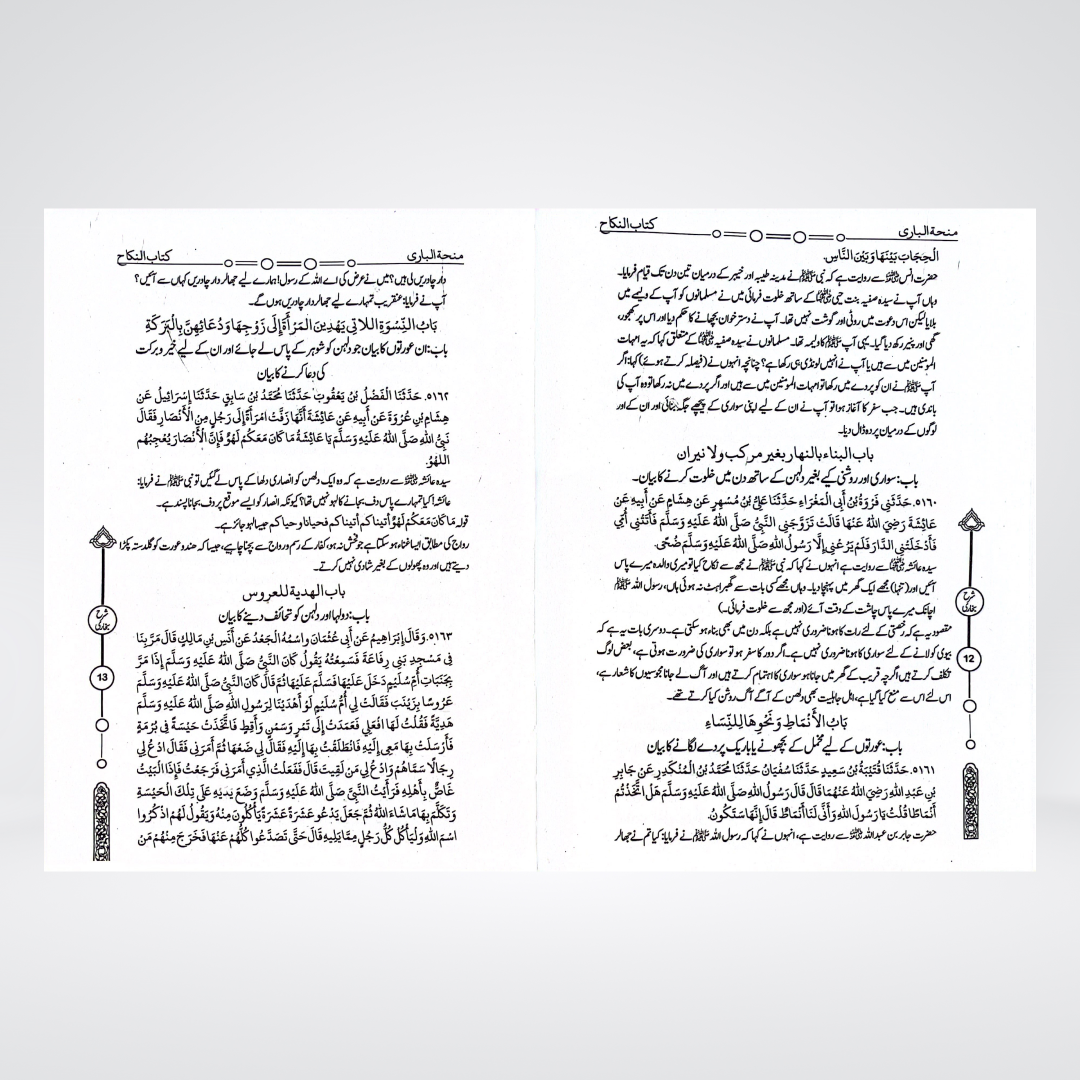 منحة الباری کتاب النکاح
الْحِجَابَ بَيْنَهَا وَبَيْنَ النَّاسِ.
حضرت انس ﷜ سے روایت ہے کہ نبی ﷺ نے مدینہ طیبہ اور خیبر کے درمیان تین دن تک قیام فرمایا۔
وہاں آپ نے سیدہ صفیہ بنت حیی ﷞ کے ساتھ خلوت فرمائی میں نے مسلمانوں کو آپ کے ولیمے میں
بلایا لیکن اس دعوت میں روٹی اور گوشت نہیں تھا۔ آپ نے دستر خوان بچھانے کا حکم دیا اور اس پر کھجور،
گھی اور پنیر رکھ دیا گیا۔ یہی آپ کا ولیمہ تھا۔ مسلمانوں نے سیدہ صفیہ ﷞ کے متعلق کہا کہ یہ امہات
المومنین میں سے ہیں یا آپ نے انہیں لونڈی ہی رکھا ہے؟ چنانچہ انہوں نے (فیصلہ کرتے ہوئے) کہا: اگر
آپ ﷺ نے ان کو پردے میں رکھا تو امہات المومنین میں سے ہیں اور اگر پردے میں نہ رکھا تو وہ آپ کی
باندی ہیں۔ جب سفر کا آغاز ہوا تو آپ نے ان کے لیے اپنی سواری کے پیچھے جگہ بنائی اور ان کے اور
لوگوں کے درمیان پردہ ڈال دیا۔
باب البناء بالنهار بغير مركب ولا نيران
باب: سواری اور روشنی کیے بغیر دلہن کے ساتھ دن میں خلوت کرنے کا بیان۔
۵۱۶۰۔ حَدَّثَنِي فَرْوَةُ بْنُ أَبِي الْمَغْرَاءِ حَدَّثَنَا عَلِيُّ بْنُ مُسْهِرٍ عَنْ هِشَامٍ عَنْ أَبِيهِ عَنْ
عَائِشَةَ رَضِيَ اللهُ عَنْهَا قَالَتْ تَزَوَّجَنِي النَّبِيُّ صَلَّى اللهُ عَلَيْهِ وَسَلَّمَ فَأَتَتْنِي أُمِّي
فَأَدْخَلَتْنِي الدَّارَ فَلَمْ يَرُعْنِي إِلَّا رَسُولُ اللهِ صَلَّى اللهُ عَلَيْهِ وَسَلَّمَ ضُحًى.
سیدہ عائشہ ﷞ سے روایت ہے انہوں نے کہا کہ نبی ﷺ نے مجھ سے نکاح کیا تو میری والدہ میرے پاس
آئیں اور (تنہا) مجھے ایک گھر میں پہنچا دیا۔ وہاں مجھے کسی بات سے گھبراہٹ نہ ہوئی ہاں، رسول اللہ ﷺ
اچانک میرے پاس چاشت کے وقت آئے (اور مجھ سے خلوت فرمائی۔)
مقصود یہ ہے کہ رخصتی کے لئے رات کا ہونا ضروری نہیں ہے بلکہ دن میں بھی بناء ہو سکتی ہے۔ دوسری بات یہ ہے کہ
بیوی کو لانے کے لئے سواری کا ہونا ضروری نہیں ہے۔ اگر دور کا سفر ہو تو سواری کی ضرورت ہوتی ہے، بعض لوگ
تکلف کرتے ہیں اگرچہ قریب کے گھر میں جانا ہو سواری کا اہتمام کرتے ہیں اور آگ لے جانا مجوسیوں کا شعار ہے،
اس لئے اس سے منع کیا گیا ہے، اہل جاہلیت بھی دلھن کے آگے آگ روشن کیا کرتے تھے۔
بَابُ الْأَنْمَاطِ وَنَحْوِهَا لِلنِّسَاءِ
باب: عورتوں کے لیے مخمل کے بچھونے یا باریک پردے لگانے کا بیان
۵۱۶۱۔ حَدَّثَنَا قُتَيْبَةُ بْنُ سَعِيدٍ حَدَّثَنَا سُفْيَانُ حَدَّثَنَا مُحَمَّدُ بْنُ الْمُنْكَدِرِ عَنْ جَابِرِ
بْنِ عَبْدِ اللهِ رَضِيَ اللهُ عَنْهُمَا قَالَ قَالَ رَسُولُ اللهِ صَلَّى اللهُ عَلَيْهِ وَسَلَّمَ هَلْ اتَّخَذْتُمْ
أَنْمَاطًا قُلْتُ يَا رَسُولَ اللهِ وَأَنَّى لَنَا أَنْمَاطٌ قَالَ إِنَّهَا سَتَكُونُ.
حضرت جابر بن عبداللہ ﷠ سے روایت ہے، انہوں نے کہا کہ رسول اللہ ﷺ نے فرمایا: کیا تم نے جھالر
شرح
بخاری
12
منحة الباری کتاب النکاح
دار چادریں لی ہیں؟ میں نے عرض کی اے اللہ کے رسول! ہمارے لیے جھالر دار چادریں کہاں سے آئیں؟
آپ نے فرمایا: عنقریب تمہارے لیے جھالر دار چادریں ہوں گے۔
بَابُ النِّسْوَةِ اللَّاتِي يَهْدِينَ الْمَرْأَةَ إِلَى زَوْجِهَا وَدُعَائِهِنَّ بِالْبَرَكَةِ
باب: ان عورتوں کا بیان جو دلہن کو شوہر کے پاس لے جائے اور ان کے لیے خیر و برکت
کی دعا کرنے کا بیان
۵۱۶۲۔ حَدَّثَنَا الْفَضْلُ بْنُ يَعْقُوبَ حَدَّثَنَا مُحَمَّدُ بْنُ سَابِقٍ حَدَّثَنَا إِسْرَائِيلُ عَنْ
هِشَامِ بْنِ عُرْوَةَ عَنْ أَبِيهِ عَنْ عَائِشَةَ أَنَّهَا زَفَّتْ امْرَأَةً إِلَى رَجُلٍ مِنَ الْأَنْصَارِ فَقَالَ
نَبِيُّ اللهِ صَلَّى اللهُ عَلَيْهِ وَسَلَّمَ يَا عَائِشَةُ مَا كَانَ مَعَكُمْ لَهْوٌ فَإِنَّ الْأَنْصَارَ يُعْجِبُهُمْ
اللَّهْوُ
سیدہ عائشہ ﷞ سے روایت ہے کہ وہ ایک دلھن کو انصاری دلھا کے پاس لے گئیں تو نبی ﷺ نے فرمایا:
عائشہ! کیا تمہارے پاس دف بجانے کا لہو نہیں تھا؟ کیونکہ انصار کو ایسے موقع پر دف بجانا پسند ہے۔
قولہ مَا كَانَ مَعَكُمْ لَهْوٌ أتيناكم أتيناكم فحيانا وحياكم جیسا لہو جائز ہے۔
رواج کی مطابق ایسا غناء ہو سکتا ہے جو فحش نہ ہو، کفار کے رسم و رواج سے بچنا چاہیے، جیسا کہ ھندو عورت کو گلدستہ پکڑا
دیتے ہیں اور وہ پھولوں کے بغیر شادی نہیں کرتے۔
باب الهدية للعروس
باب: دولہا اور دلہن کو تحائف دینے کا بیان
۵۱۶۳۔ وَقَالَ إِبْرَاهِيمُ عَنْ أَبِي عُثْمَانَ وَاسْمُهُ الْجَعْدُ عَنْ أَنَسِ بْنِ مَالِكٍ قَالَ مَرَّ بِنَا
فِي مَسْجِدِ بَنِي رِفَاعَةَ فَسَمِعْتُهُ يَقُولُ كَانَ النَّبِيُّ صَلَّى اللهُ عَلَيْهِ وَسَلَّمَ إِذَا مَرَّ
بِجَنَبَاتِ أُمِّ سُلَيْمٍ دَخَلَ عَلَيْهَا فَسَلَّمَ عَلَيْهَا ثُمَّ قَالَ كَانَ النَّبِيُّ صَلَّى اللهُ عَلَيْهِ وَسَلَّمَ
عَرُوسًا بِزَيْنَبَ فَقَالَتْ لِي أُمُّ سُلَيْمٍ لَوْ أَهْدَيْنَا لِرَسُولِ اللهِ صَلَّى اللهُ عَلَيْهِ وَسَلَّمَ
هَدِيَّةً فَقُلْتُ لَهَا افْعَلِي فَعَمَدَتْ إِلَى تَمْرٍ وَسَمْنٍ وَأَقِطٍ فَاتَّخَذَتْ حَيْسَةً فِي بُرْمَةٍ
فَأَرْسَلَتْ بِهَا مَعِي إِلَيْهِ فَانْطَلَقْتُ بِهَا إِلَيْهِ فَقَالَ لِي ضَعْهَا ثُمَّ أَمَرَنِي فَقَالَ ادْعُ لِي
رِجَالًا سَمَّاهُمْ وَادْعُ لِي مَنْ لَقِيتَ قَالَ فَفَعَلْتُ الَّذِي أَمَرَنِي فَرَجَعْتُ فَإِذَا الْبَيْتُ
غَاصٌّ بِأَهْلِهِ فَرَأَيْتُ النَّبِيَّ صَلَّى اللهُ عَلَيْهِ وَسَلَّمَ وَضَعَ يَدَيْهِ عَلَى تِلْكَ الْحَيْسَةِ
وَتَكَلَّمَ بِهَا مَا شَاءَ اللهُ ثُمَّ جَعَلَ يَدْعُو عَشَرَةً عَشَرَةً يَأْكُلُونَ مِنْهُ وَيَقُولُ لَهُمْ اذْكُرُوا
اسْمَ اللهِ وَلْيَأْكُلْ كُلُّ رَجُلٍ مِمَّا يَلِيهِ قَالَ حَتَّى تَصَدَّعُوا كُلُّهُمْ عَنْهَا فَخَرَجَ مِنْهُمْ مَنْ
شرح
بخاری
13